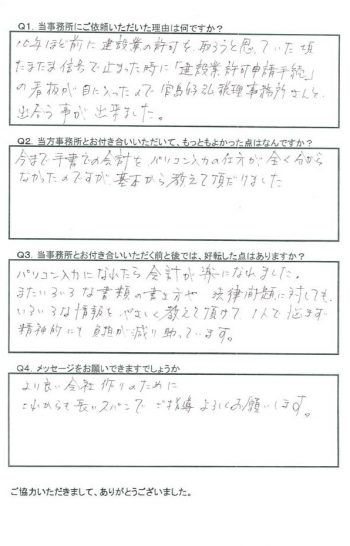 Q1. 当事務所にご依頼いただいた理由は何ですか？
10年ほど前に建設業の許可を取ろうと思っていた頃
たまたま信号で止まった時に「建設業許可申請手続」
の看板が目に入ったので宮島好弘税理事務所さんと
出会う事が出来ました。
Q2. 当方事務所とお付き合いいただいて、もっともよかった点はなんですか？
今まで手書での会計をパソコン入力の仕方が全く分から
なかったのですが、基本から教えて頂だけました
Q3. 当事務所とお付き合いいただく前と後では、好転した点はありますか？
パソコン入力になれたら会計が楽になれました。
またいろいろな書類の書き方や法律問題に対しても、
いろいろな情報をやさしく教えて頂けて1人で悩まず
精神的にも負担が減り助っています。
Q4. メッセージをお願いできますでしょうか
より良い会社作りのために
これからも長いスパンでご指導よろしくお願いします。
ご協力いただきまして、ありがとうございました。